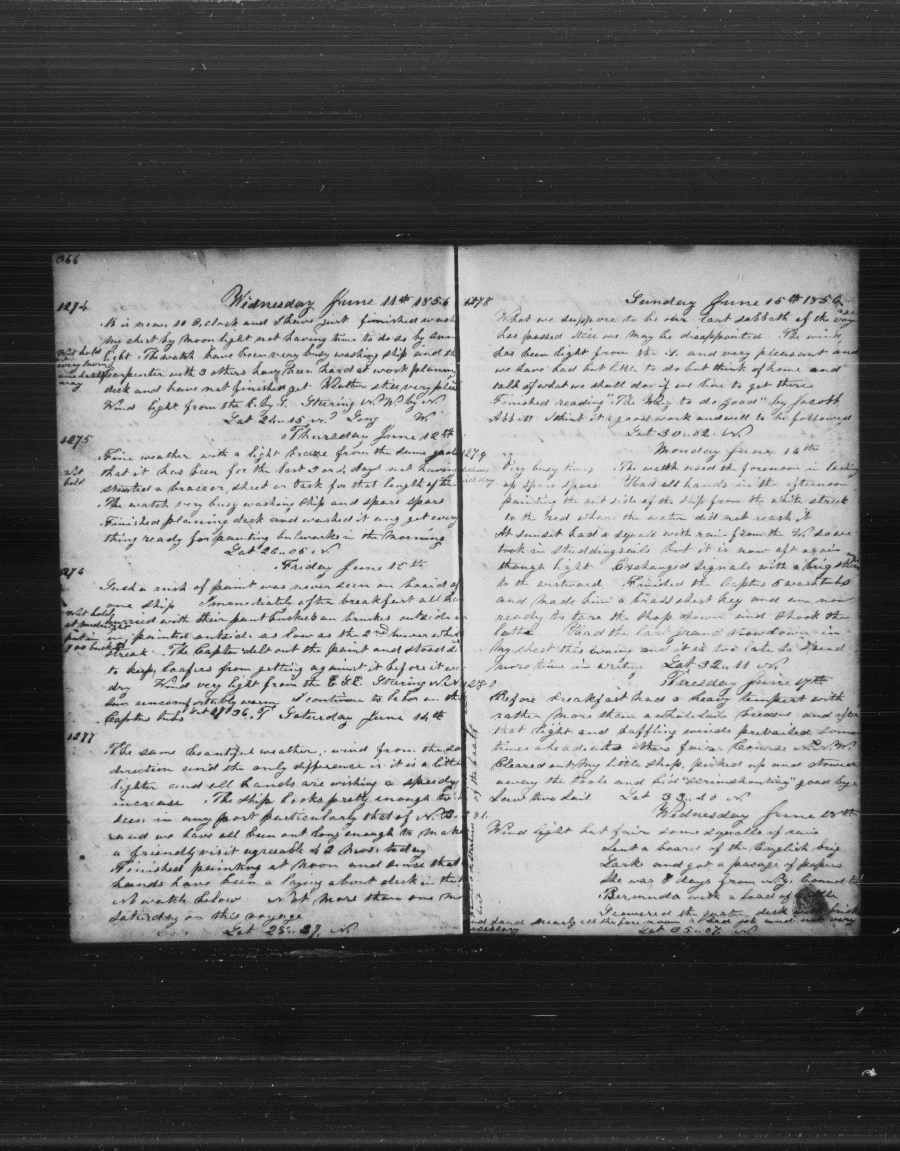 366
1274 Wednesday June 11th 1856
It is now 10 O,clock and I have just finished wash
my chest by moon light not having time to do so by sun
light. The watch have been very busy washing ship and the
carpenter with 3 others have been hard at work planing
deck and have not finished yet. Weather still very
Wind light from the E. by S. Steering N. W. by N
Lat 24..15 N. Long W.
1275 Thursday June 12th
Wet hold
Fine weather with a light breeze from the same
that it has been for the last 3 or 4 days not having
started a brace or sheet or tack for that length of
The watch very busy washing ship and spare spars
Finished planing deck and washed it and got every
thing ready for painting bulwarks in the morning
Lat 26..05 N
1276 Friday June 13th
Such a rush of paint was never seen on board of
one ship Immediately after breakfast all
Wet hold
hurried with their paint buckets and brushes outside
on, painted outside as low as the 2nd
streak. The Capter delt out the paint and stood
to keep loafers from getting against it before it
dry Wind very light from the E.S.E. Steering
Sun uncomfortably warm I continue to labor on the
Capters tubs Lat 27..36. N
Saturday June 14th
1277
The same beautiful weather, wind from the
direction and the only difference is it is a little
lighter and all hands are wishing a speedy
increase. The ship looks pretty enough to
seen in any port particularly that of N. B.
and we have all been out long enough to make
a friendly visit agreeable 42 mos. to day
Finished painting at noon and since that
hands have been a laying about deck in
No watch below Not more than one
Saturday on this voyage
Lat 28..37. N
1278 Sunday June 15th 1856
What we suppose to be our last sabbath of the voy
has passed still we may be disappointed. The wind
has been light from the S. and very pleasant and
we have had but little to do but think of home and
talk of what we shall do if we live to get there
Finished reading "The Way to do good" by Jacob
Abbott. I think it a good work and well to be followed
Lat 30..02. N
1279 Monday June 16th
Very busy times. The watch used the forenoon in lashing
up spare spars. Had all hands in the afternoon
painting the out side of the ship from the white streak
to the red where the water did not reach it
At sunset had a squall with rain from the W. so we
took in studdingsails but it is now aft again
though light Exchanged signals with a brig
to the westward Finished the Capters 5 wash tubs
and made him a brass chest key and am now
ready to tere the shop down and shook the
lathe Had the last grand stow down in
my chest this evening and it is too late to spend
more time in writing Lat 32..11 N
1280 Tuesday June 17th
Before breakfast had a heavy tempest with
rather more than a whole sale breeze and after
that light and baffling winds prevailed some
times ahead and others fair Course N.N.W.
Cleared out my little shop, picked up and stowed
away the tools and bid "scrimshonting" good bye
Saw two sail Lat 33..40 N
Wednesday June 18th
Wind light but fair some squalls of rain
Sent a board of the English brig
Lark and got a pasage of papers
She was 8 days from N.Y. bound to
Bermuda with a load of
I covered the quater deck
and sand nearly all the forenoon a bad job and
necessary Lat 35..07. N